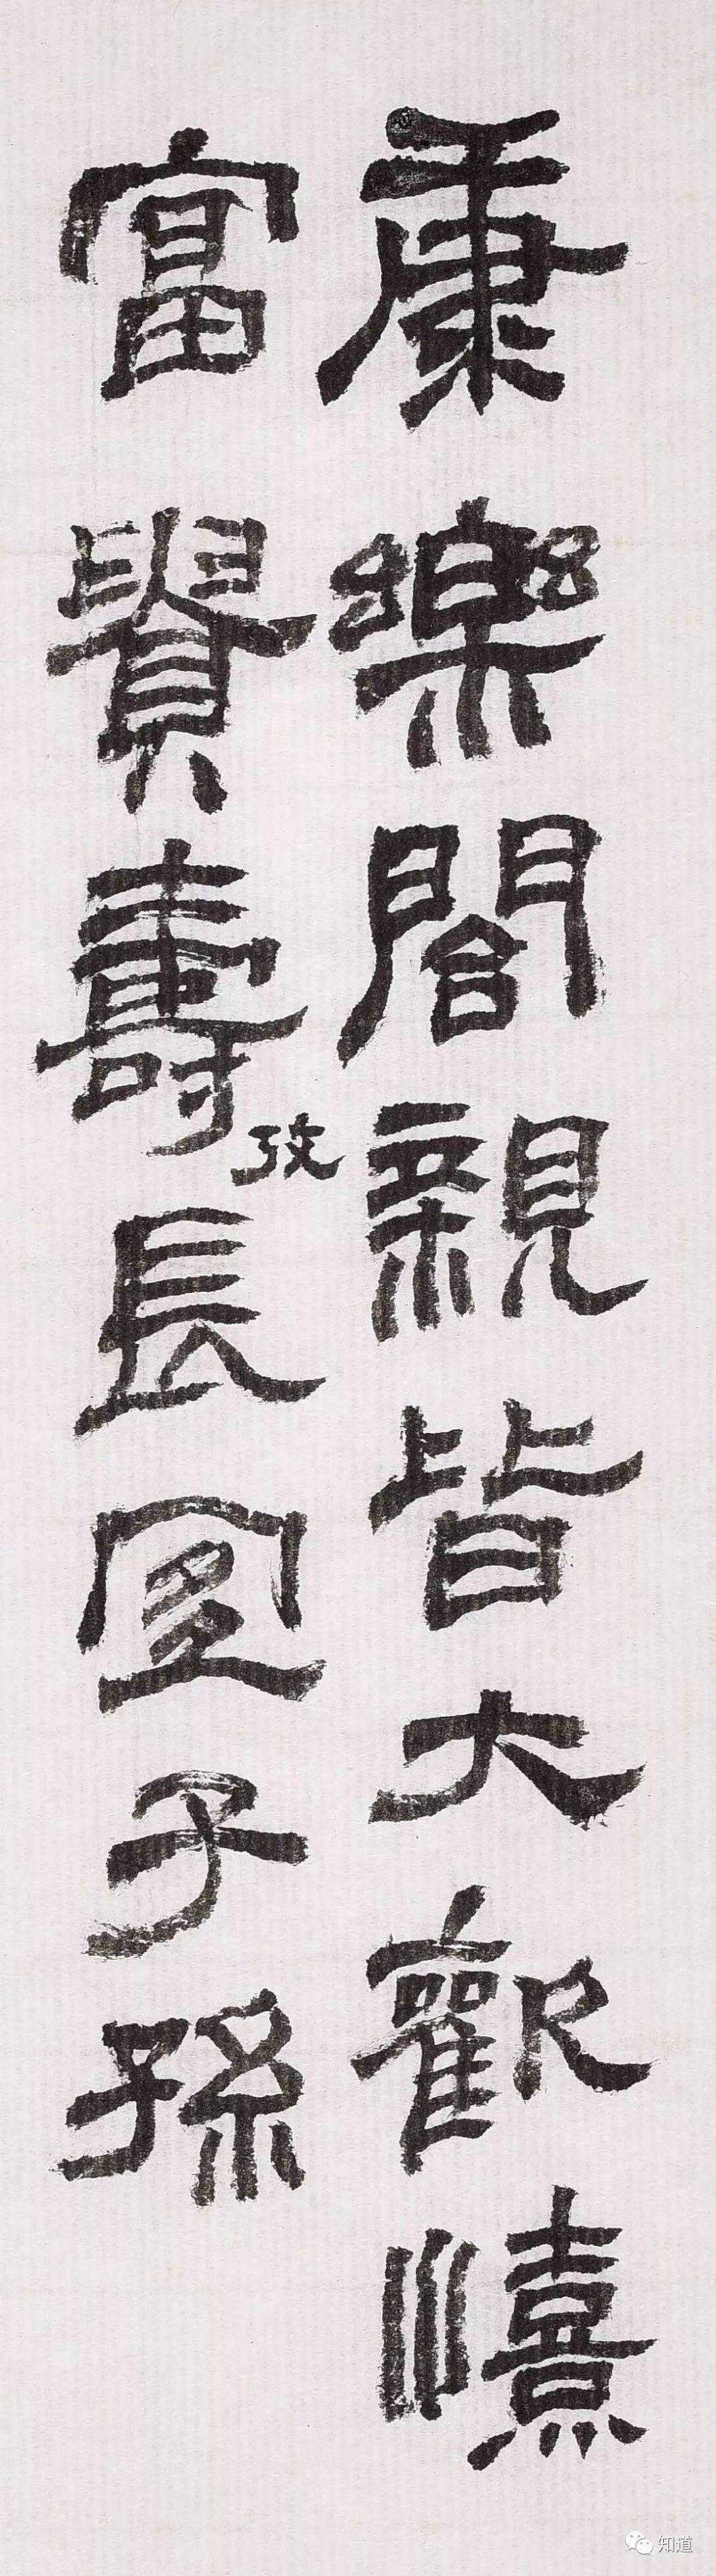 康樂閤親皆大歡憘
富貴壽攷長宜子孫
知道